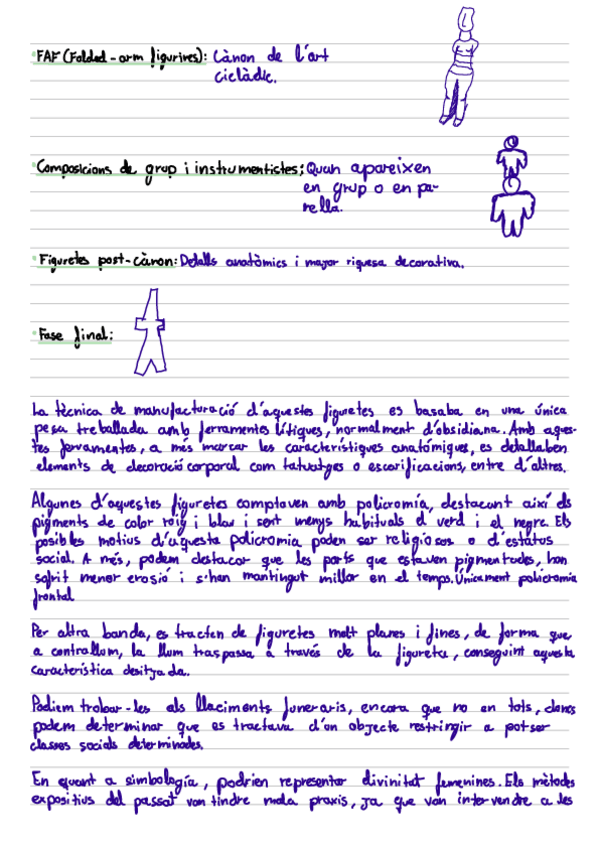 FAF (Folded-arm figurines): Cànon de l'art
ciclàdic.
Composicions de grup i instrumentistes: Quan apareixen
en grup o en pa-
rella.
Figuretes post-cànon: Detalls anatòmics i major riquesa decorativa.
Fase final:
La tècnica de manufacturació d'aquestes figuretes es basaba en una única
peça treballada amb ferramentes lítiques, normalment d'obsidiana. Amb aques-
tes ferramentes, a més marcar les característiques anatómiques, es detallaben
elements de decoració corporal com tatuatges o escorificacions, entre d'altres.
Algunes d'aquestes figuretes comptaven amb policromía, destacant així els
pigments de color roig i blau i sent menys habituals el verd i el negre. Els
posibles motius d'aquesta policromia poden ser religiosos o d'estatus
social. A més, podem destacar que les parts que estaven pigmentades, han
sofrit menor erosió i s'han mantingut millor en el temps. Únicament policromia
frontal
Per altra banda, es tracten de figuretes molt planes i fines, de forma que
a contrallum, la llum traspassa a través de la figureta, conseguint aquesta
característica desitjada.
Podiem trobar-les als llaciments funeraris, encara que no en tots, doncs
podem determinar que es tractava d'un objecte restringir a potser
classes socials determinades.
En quant a simbología, podrien representar divinitat femenines. Els mètodes
expositius del passat van tindre mala praxis, ja que van intervendre a les